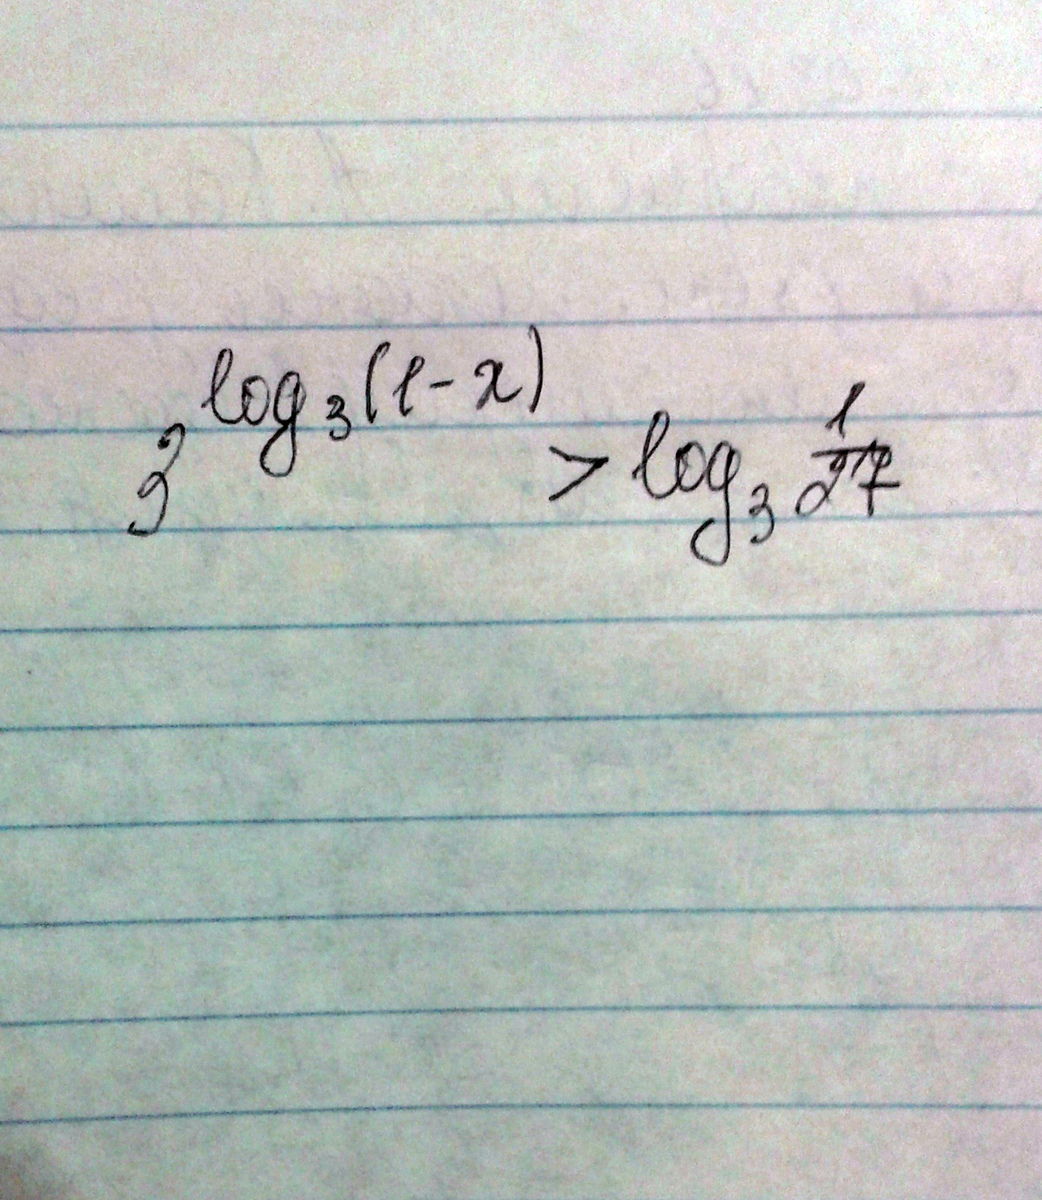 3^{log_3(1-x)} > log_3 \frac{1}{27}